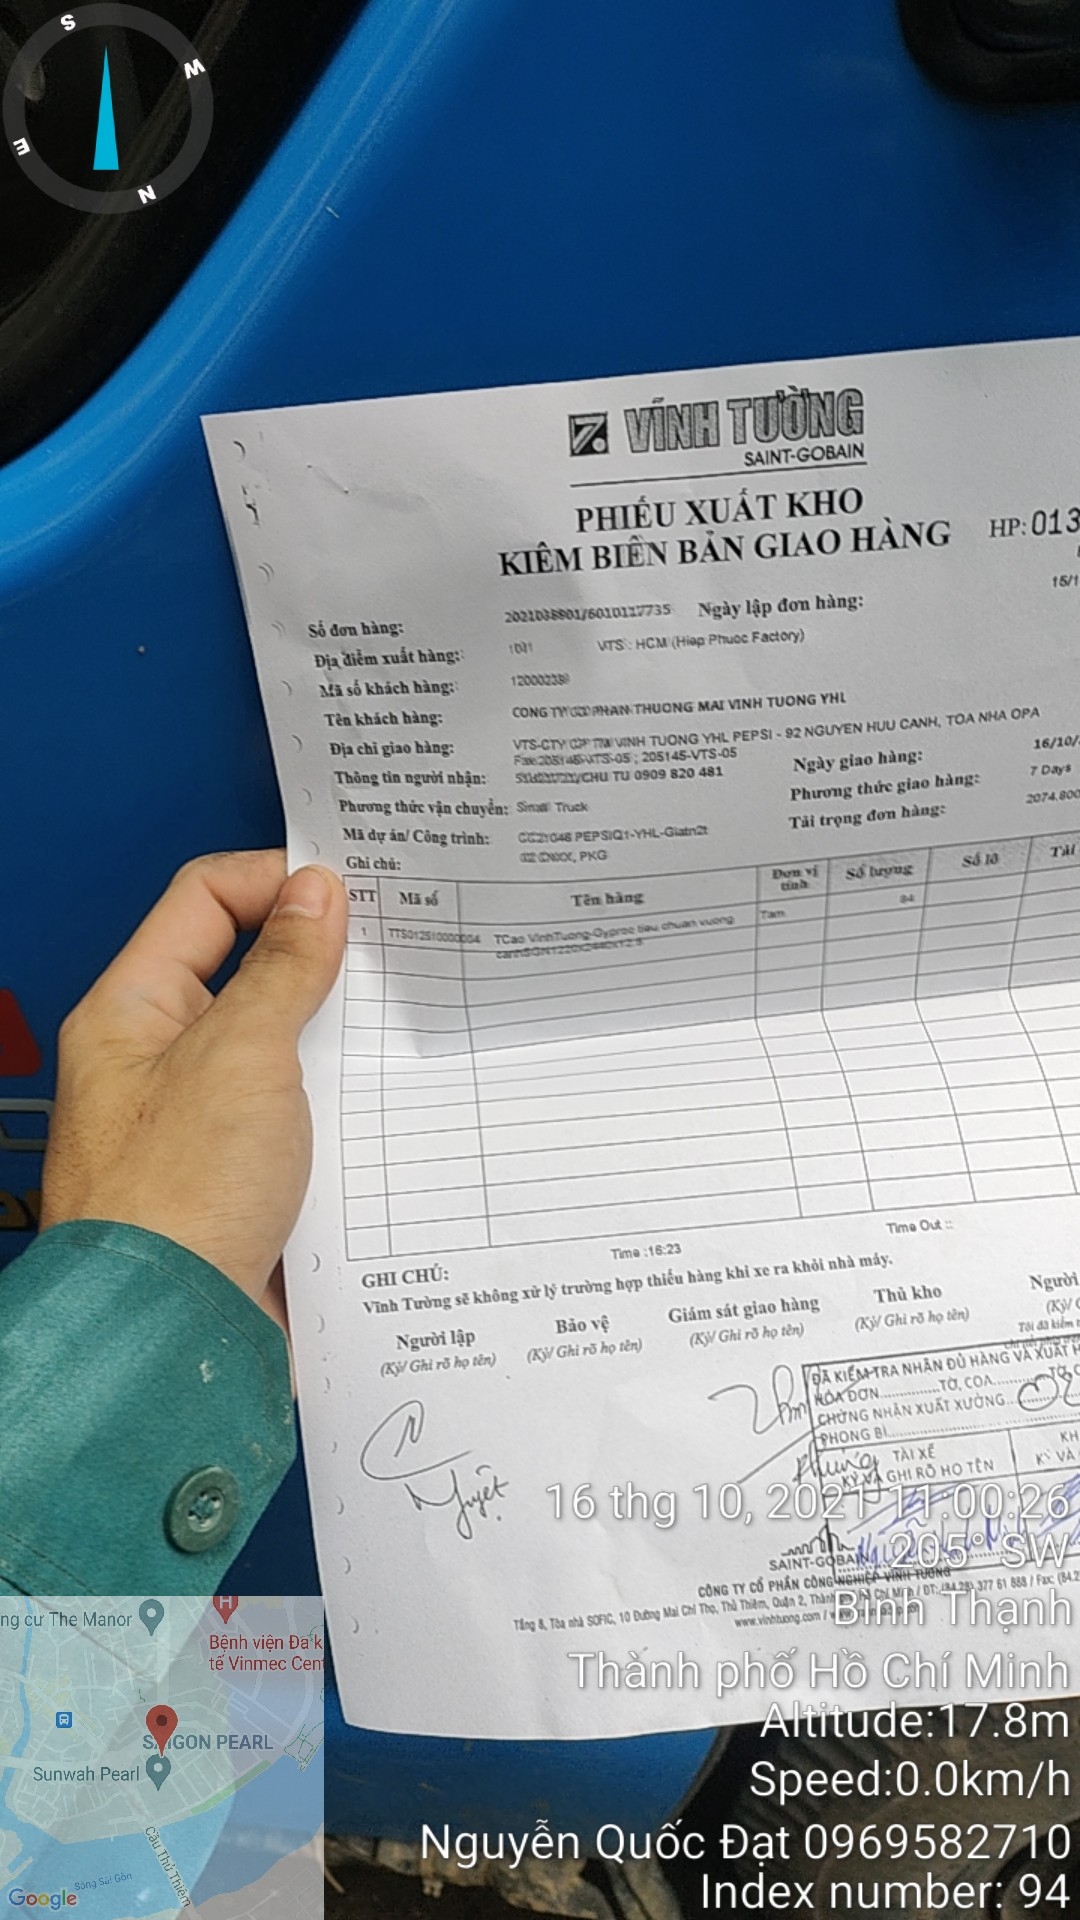 S
W
E
N
VĨNH TƯỜNG
SAINT-GOBAIN
PHIẾU XUẤT KHO
KIÊM BIÊN BẢN GIAO HÀNG
HP: 013
15/1
Số đơn hàng: Ngày lập đơn hàng:
Địa điểm xuất hàng: VTS : HCM (Hiep Phuoc Factory)
Mã số khách hàng:
Tên khách hàng: CONG TY PHAN THUONG MAI VINH TUONG YHL
Địa chỉ giao hàng: VTS-CTY VINH TUONG YHL PEPSI - 92 NGUYEN HUU CANH, TOA NHA OPA
205145-VTS-05
Ngày giao hàng: 16/10/
Thông tin người nhận: CHU TU 0909 820 481
Phương thức giao hàng: 7 Days
Phương thức vận chuyển: Small Truck
Tải trọng đơn hàng: 2074.800
Mã dự án/ Công trình: PEPSIQ1-YHL-Giatn2t
Ghi chú: PKG
STT Mã số Tên hàng Đơn vị tính Số lượng Số lô Tải
1 TCao VinhTuong-Gyproc tieu chuan vuong Tam 84
Time :16:23 Time Out ::
GHI CHÚ:
Vĩnh Tường sẽ không xử lý trường hợp thiếu hàng khi xe ra khỏi nhà máy.
Người lập Bảo vệ Giám sát giao hàng Thủ kho Người
(Ký/ Ghi rõ họ tên) (Ký/ Ghi rõ họ tên) (Ký/ Ghi rõ họ tên) (Ký/ Ghi rõ họ tên) (Ký/ G
Tôi đã kiểm t
ĐÃ KIỂM TRA NHẬN ĐỦ HÀNG VÀ XUẤT H
HÓA ĐƠN...............TỜ, COA..............TỜ, C
CHỨNG NHẬN XUẤT XƯỞNG
PHONG BÌ
TÀI XẾ KH
KÝ VÀ GHI RÕ HỌ TÊN KÝ VÀ
Nguyệt
Phùng
SAINT-GOBAIN
CÔNG TY CỔ PHẦN CÔNG NGHIỆP VĨNH TƯỜNG
Tầng 8, Tòa nhà SOFIC, 10 Đường Mai Chí Thọ, Thủ Thiêm, Quận 2, Thành phố Hồ Chí Minh / ĐT: (84.28) 377 61 888 / Fax: (84.2
www.vinhtuong.com /
16 thg 10, 2021 11:00:26
205° SW
Bình Thạnh
Thành phố Hồ Chí Minh
Altitude:17.8m
Speed:0.0km/h
Nguyễn Quốc Đạt 0969582710
Index number: 94
ng cư The Manor
Bệnh viện Đa k
tế Vinmec Cent
SAIGON PEARL
Sunwah Pearl
Cầu Thủ Thiêm
Sông Sài Gòn
Google